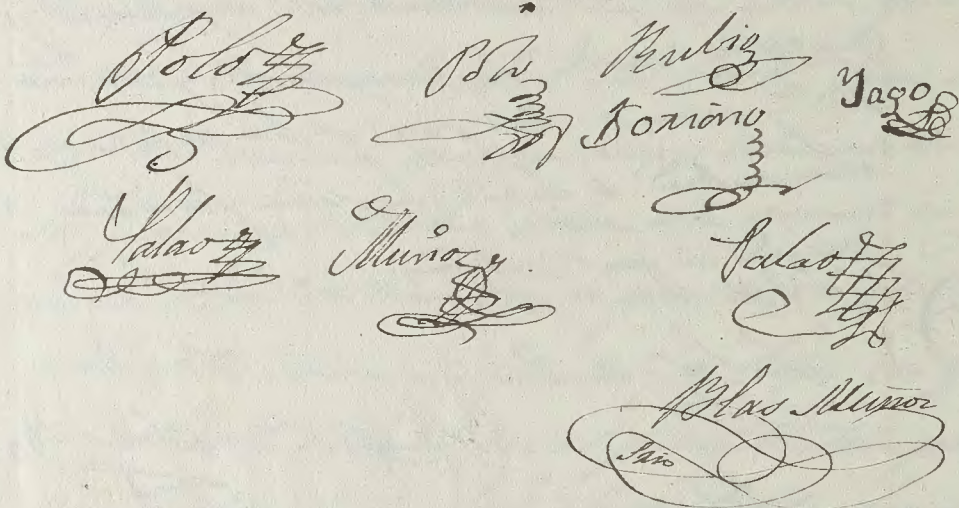 Polo Rubio
Yago
Soriano
Palao Muñoz Palao
Blas Muñoz
Srio